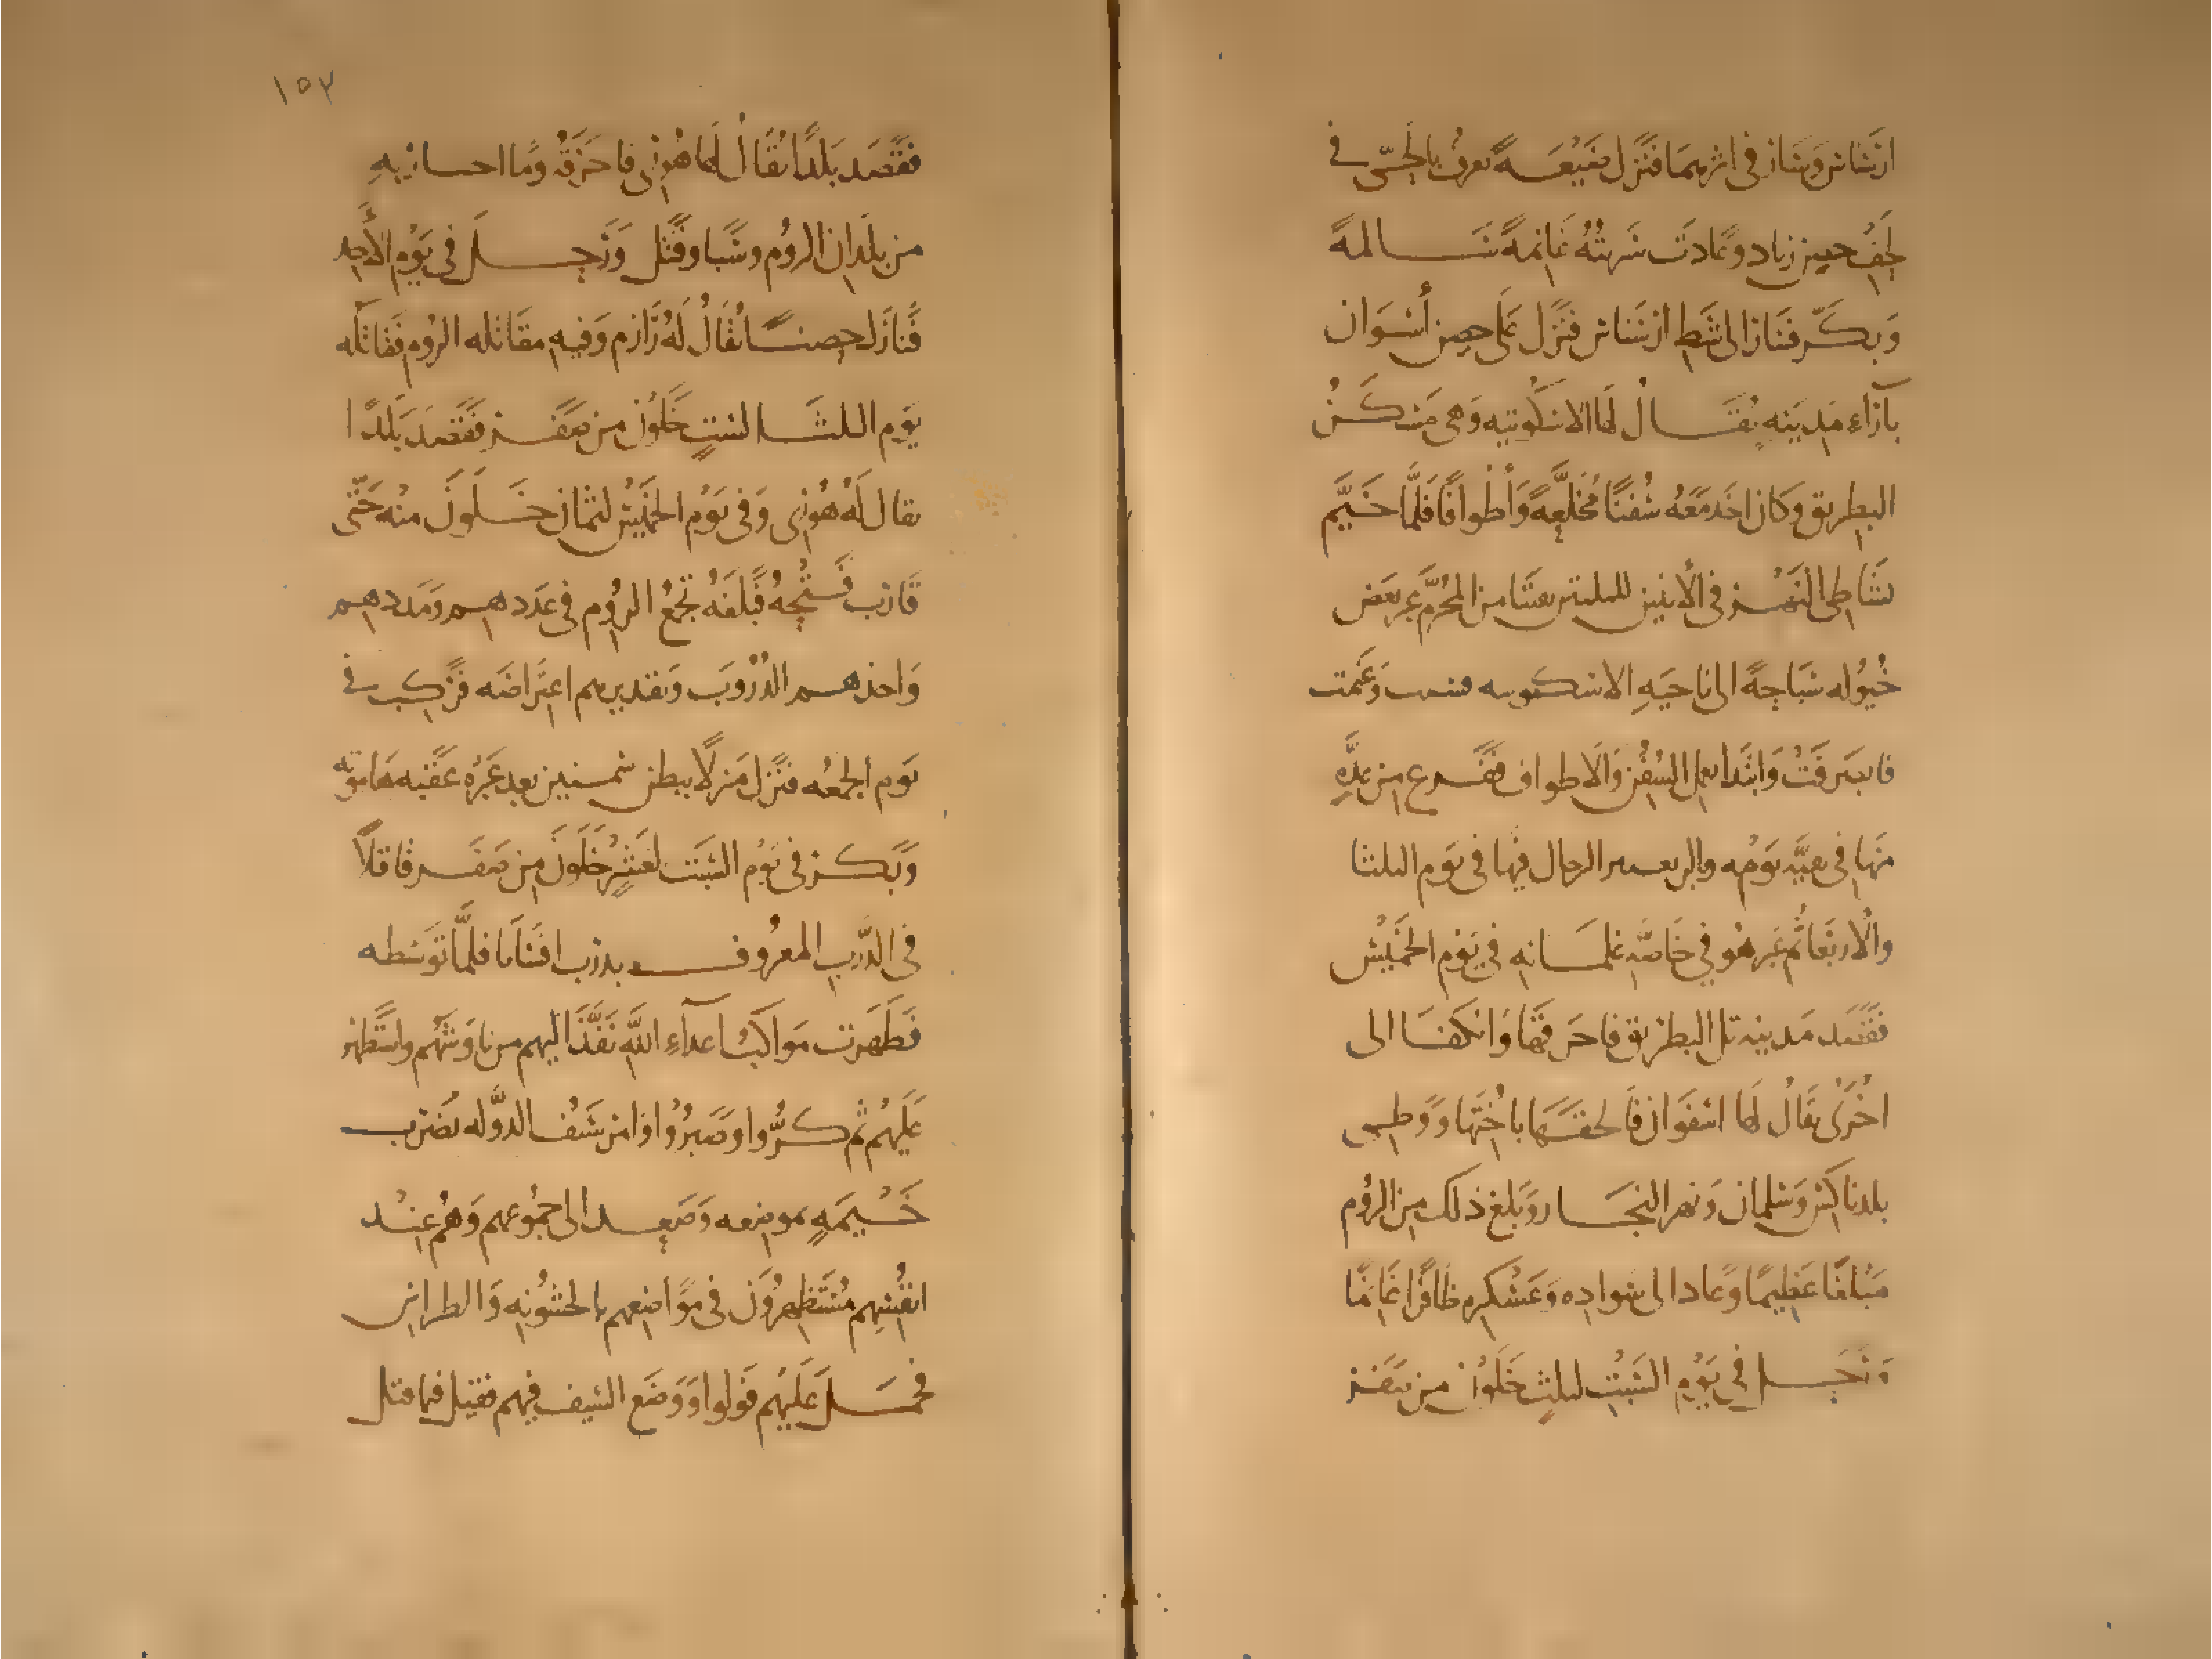 ارسناس وسار في اثرهما فنزل بضيعة تعرف بالحسى في
لحف حصن زياد وعادت سريته غانمة سالمة
وبكر فسار الى شط ارسناس فنزل على حصن أشوان
بآزاء مدينه يقال لها الانكوتيه وهي مسكن
البطريق وكان اخذ معه سفنا مخلعة وأطوافا فلما خيم
بشاطى النهر في الأثنين لليلتين بقيتا من المحرم عبر بعض
خيوله سباحة الى ناحية الانكوتيه وغنمت
فانصرفت وابتدا بعمل السفن والاطواف ففرع من عدة
منها في بقية يومه ولم يعبر الرجال فيها في يوم الثلثا
والاربعا ثم عبر هو في خاصة غلمانه في يوم الخميس
فقصد مدينه تل البطريق فاحرقها وانكفا الى
اخرى يقال لها اشفوان فالحقها باختها ووطى
بلد ناكس وسلمان ونهر النجار وبلغ ذلك من الروم
مبلغا عظيما وعاد الى سواده وعسكره ظافرا غانما
ورحل في يوم السبت لثلث خلون من صفر
١٥٣
فقصد بلدا يقال لها هورى فاحرقه وما احسار به
من بلدان الروم وسبا وقتل ورحل في يوم الأحد
فنازل حصنا يقال له زازم وفيه مقاتله الروم فقاتله
يوم الثلثا لست خلون من صفر فقصد بلدا
يقال له هورى وفى يوم الخميس لثمان خلون منه حتى
قارب فتحه فبلغه تجمع الروم في عددهم ومددهم
واخذهم الدروب وتقديرهم اعتراضه فركب في
يوم الجمعه فنزل منزلا ببطن سمنين بعد عبره عقبه
وبكر في يوم السبت لعشر خلون من صفر قافلا
في الدرب المعروف بدرب فلما توسطه
فظهرت مواكب اعدآء الله نفذ اليهم من ناوشهم واستظهر
عليهم ثم كروا وصبروا وامر سيف الدوله بضرب
خيمة بموضعه وصعد الى جموعهم وهم عند
انفسهم مستظهرون في مواضعهم بالخشونه والطراس
فحمل عليهم فولوا ووضع السيف فيهم فقتل فيما قتل